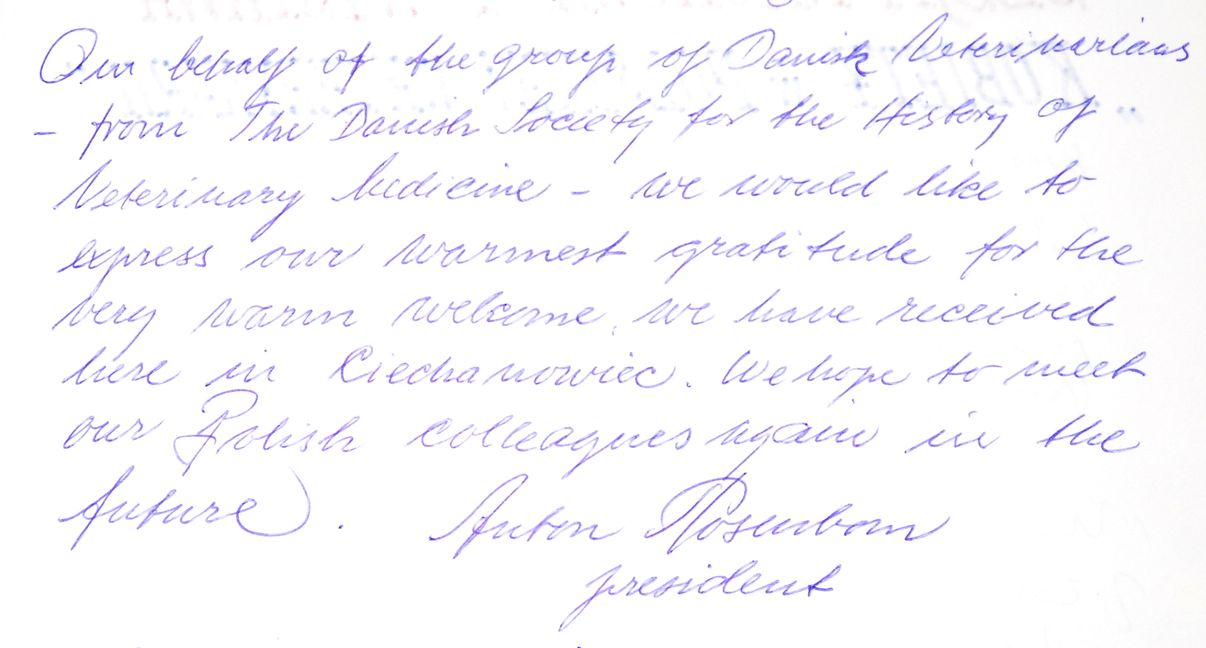 On behalf of the group of Danish Veterinarians
- from The Danish Society for the History of
Veterinary Medicine - we would like to
express our warmest gratitude for the
very warm welcome, we have received
here in Ciechanowiec. We hope to meet
our Polish colleagues again in the
future.
Anton Rosenbom
president